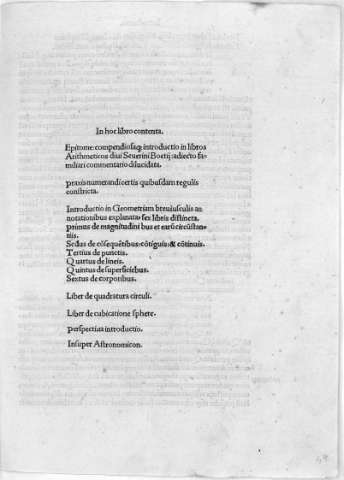 In hoc libro contenta.
Epitome: compendiosaq; introductio in libros
Arithmeticos diui Seuerini Boetij: adiecto fa-
miliari commentario dilucidata.
Praxis numerandi certis quibusdam regulis
constricta.
Introductio in Geometriam breuiusculis an
notationibus explanata: sex libris distincta.
primus de magnitudini bus et earū circūstan-
tiis.
Secūdus de cōsequētibus: cōtiguis & cōtinuis.
Tertius de punctis.
Quartus de lineis.
Quintus de superficiebus.
Sextus de corporibus.
Liber de quadratura circuli.
Liber de cubicatione sphere.
Perspectiua introductio.
Insuper Astronomicon.